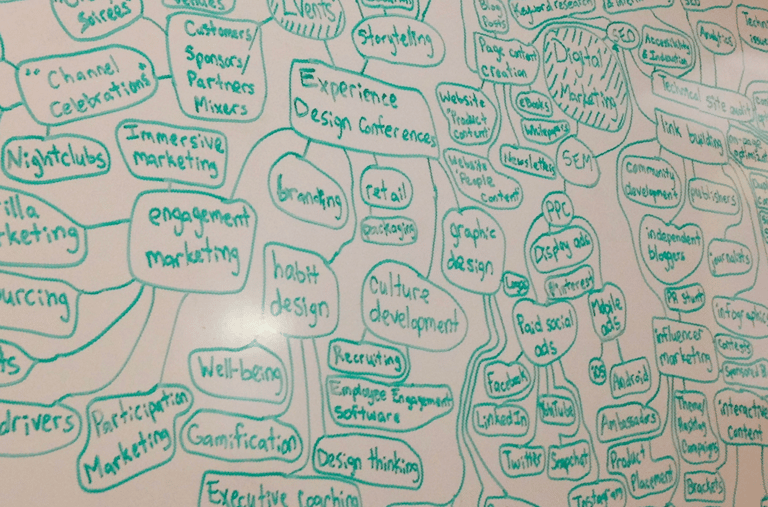 Soirées
Events
Storytelling
Customers/
Sponsors/
Partners
Mixers
"Channel
Celebrations"
Nightclubs
Immersive
marketing
engagement
marketing
Experience
Design Conferences
branding
retail
packaging
habit
design
culture
development
Recruiting
Employee Engagement
Software
Design thinking
Well-being
Gamification
Executive coaching
Participation
Marketing
drivers
illa
keting
ourcing
ts
Blog
Posts
Keyword research
Page content
creation
Website
"Product
Content"
eBooks
Whitepapers
Newsletters
Website
"People
Content"
graphic
design
Logos
Digital
Marketing
SEO
SEM
PPC
Display ads
Pinterest
Paid social
ads
Mobile
ads
Facebook
LinkedIn
YouTube
Twitter
Snapchat
Instagram
iOS
Android
Accessibility
& Indexation
Analytics
Technical site audit
link building
community
development
publishers
independent
bloggers
journalists
PR stunt
influencer
marketing
Ambassadors
Product
Placement
Campaigns
Brackets
infographic
Contests
Sponsored
interactive
Content